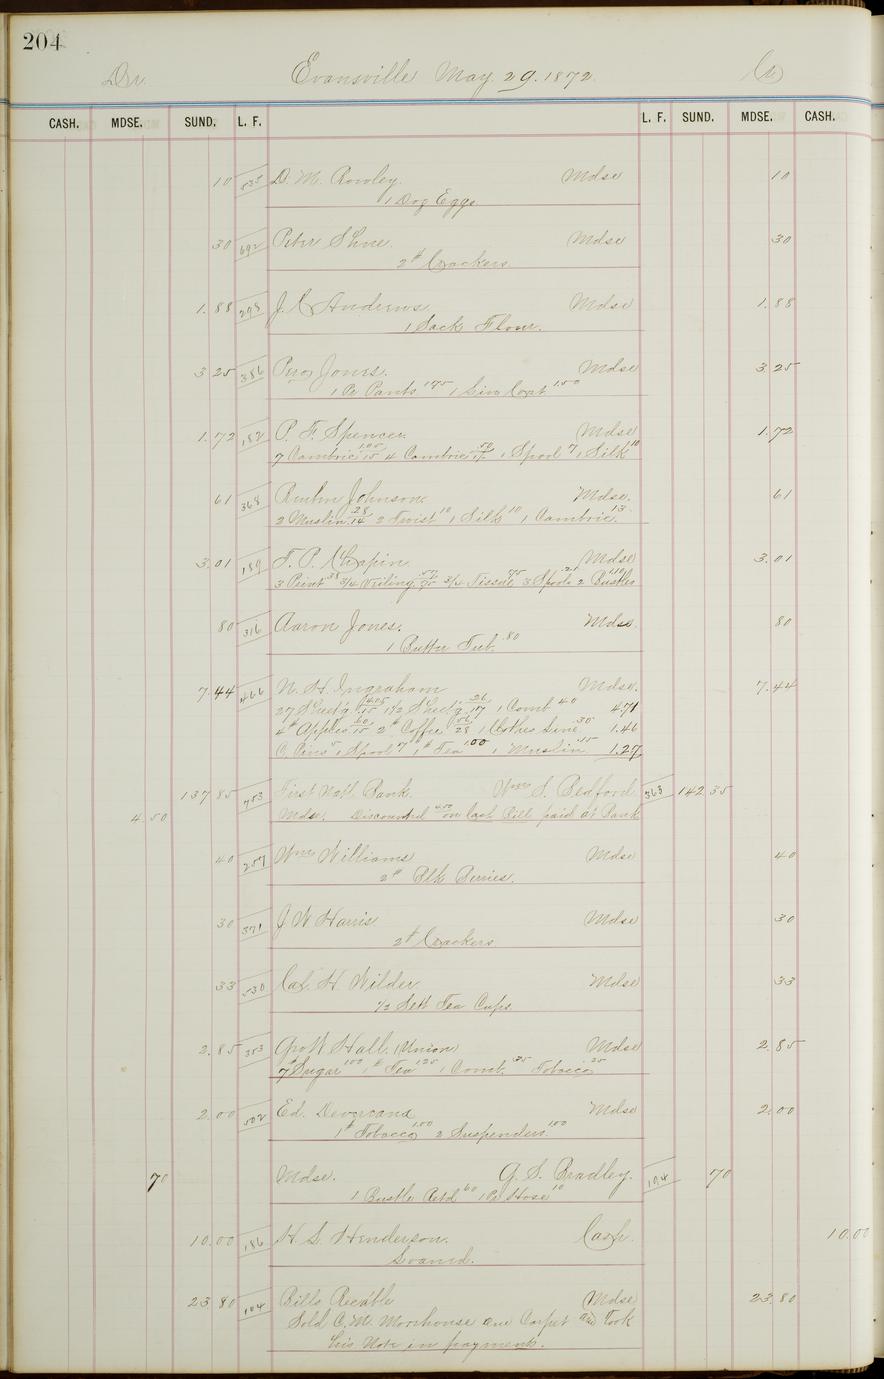 204
Dr. Evansville May. 29. 1872. Cr
CASH. MDSE. SUND. L. F. L. F. SUND. MDSE. CASH.
10 535 D. M. Rowley. Mdse 10
1 Doz Eggs
30 692 Peter Shue. Mdse 30
2# Crackers.
1.88 298 J. C Andrews Mdse 1.88
1 Sack Flour.
3 25 386 Jones. Mdse 3.25
1 Pr Pants 175 1 Lin Coat 1.50
1.72 182 P. F. Spencer. Mdse 1.72
7 Cambric 1.05/15 4 Cambric 1 Spool 7 1 Silk 10
61 368 Reuben Johnson Mdse. 61
2 Muslin 28/14 2 Twist 10 1 Silk 10 1 Cambric 13
3.01 189 F. P. Chapin Mdse 3.01
3 Print 38 3/4 Veiling 3/4 Tissue 75 3 Spools 21 2 Bustles 1.10
80 316 Aaron Jones. Mdse. 80
1 Butter Tub. 80
7.44 466 N. H. Ingraham Mdse. 7.44
27 Sheet'g 4.05/15 1 1/2 Sheet'g 26/17 1 Comb 40 4.71
4# Apples 60/15 2# Coffee 56/28 1 Clothes Line 30 1.46
C. Pins 5 1 Spool 7 1# Tea 1.00 1 Muslin 15 1.27
137 85 753 First Natl. Bank. Wm S. Bedford 363 142 35
4.50 Mdse. Discounted 4.50 on last Bill paid at Bank
40 257 Wm Williams Mdse 40
2# Blk Berries.
30 371 J W Harris Mdse 30
2# Crackers
33 530 Cal. H. Wilder Mdse 33
1/2 Sett Tea Cups.
2.85 353 Geo W Hall. (Union) Mdse 2.85
7# Sugar 1.00 1# Tea 1.25 1 Comb. 35 Tobacco 25
2.00 502 Ed. Devereaux Mdse 2.00
1# Tobacco 1.00 2 Suspenders 1.00
70 Mdse. G. S. Bradley. 194 70
1 Bustle Retd 60 1 Pr Hose 10
10.00 186 H. S. Henderson. Cash. 10.00
Loaned.
23 80 104 Bills Rec'able Mdse 23.80
Sold C. M. Morehouse one Carpet and Took
his Note in payment.